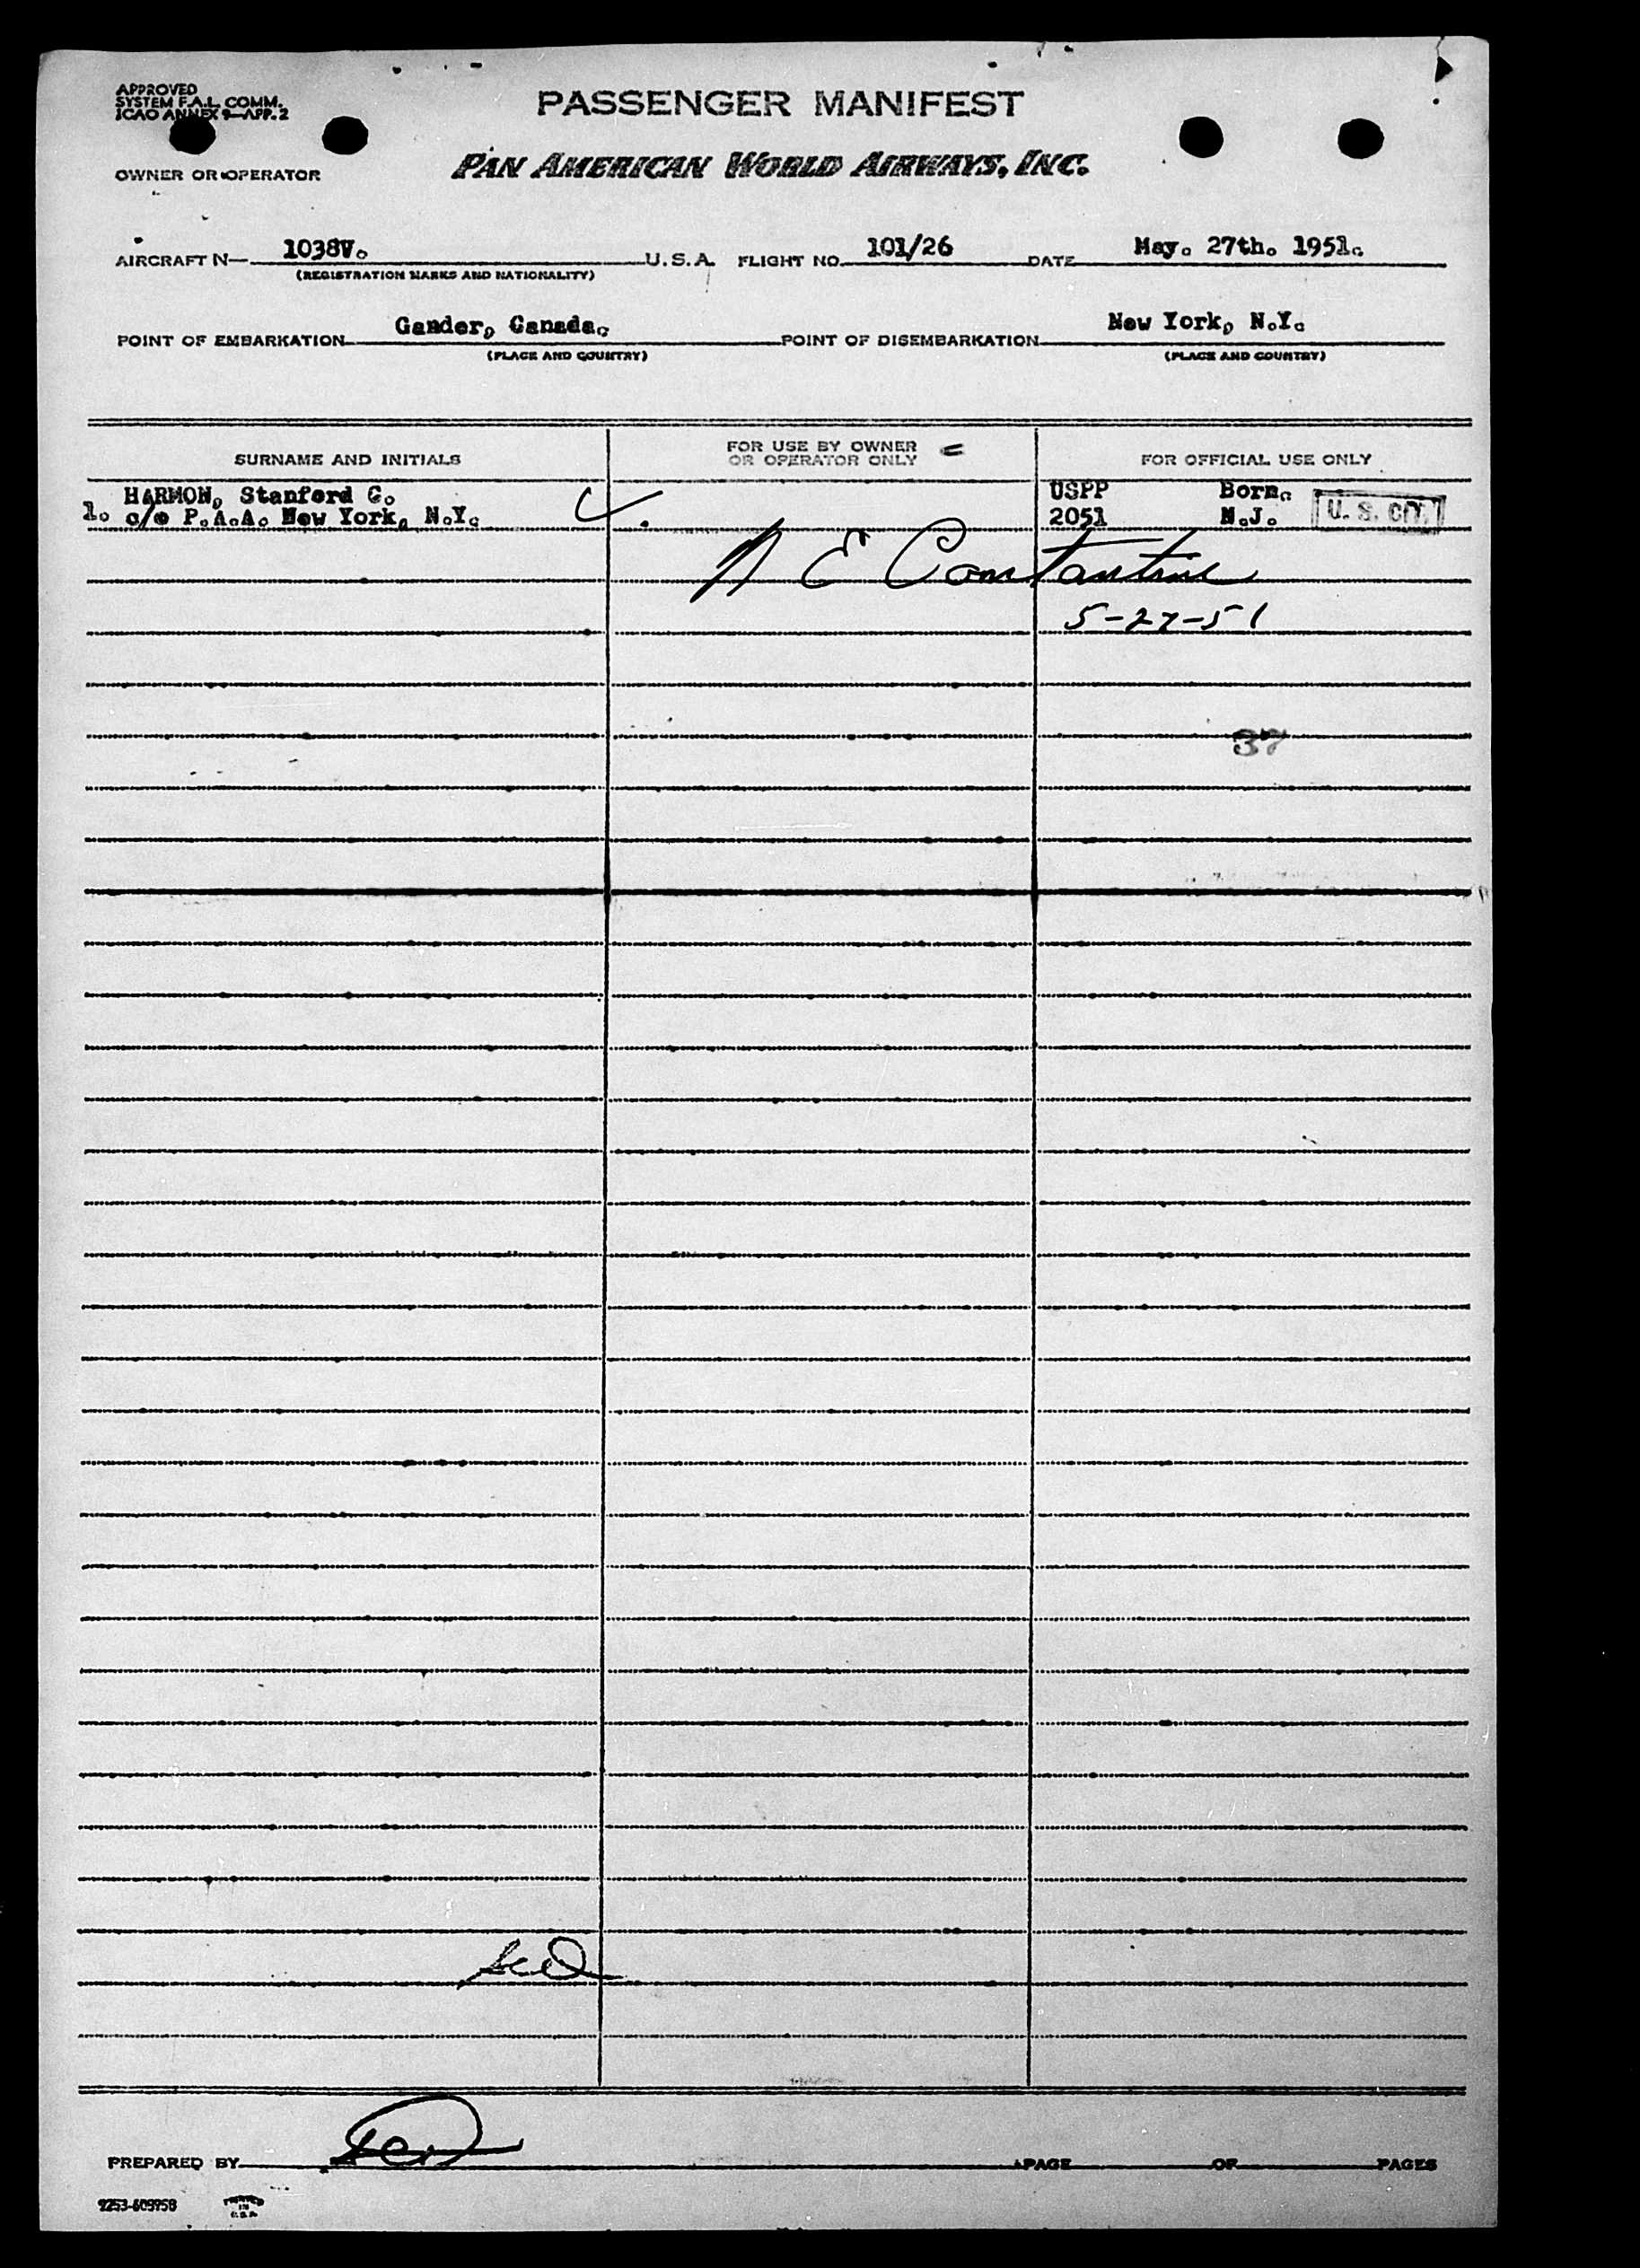 APPROVED
SYSTEM F.A.L. COMM.
ICAO ANNEX 9—APP. 2
PASSENGER MANIFEST
OWNER OR OPERATOR
PAN AMERICAN WORLD AIRWAYS, INC.
AIRCRAFT N— 1038V. U.S.A. FLIGHT NO. 101/26 DATE May. 27th. 1951.
(REGISTRATION MARKS AND NATIONALITY)
POINT OF EMBARKATION Gander, Canada. POINT OF DISEMBARKATION New York, N.Y.
(PLACE AND COUNTRY) (PLACE AND COUNTRY)
SURNAME AND INITIALS FOR USE BY OWNER OR OPERATOR ONLY FOR OFFICIAL USE ONLY
HARMON, Stanford G. USPP Born.
1. c/o P.A.A. New York, N.Y. 2051 N.J. U. S. CIT.
N E Constantine
5-27-51
37
PREPARED BY PAGE OF PAGES
2253-609958 PRINTED
IN
U.S.A.